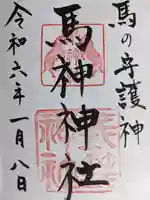 馬の守護神
馬神神社
令和六年一月八日